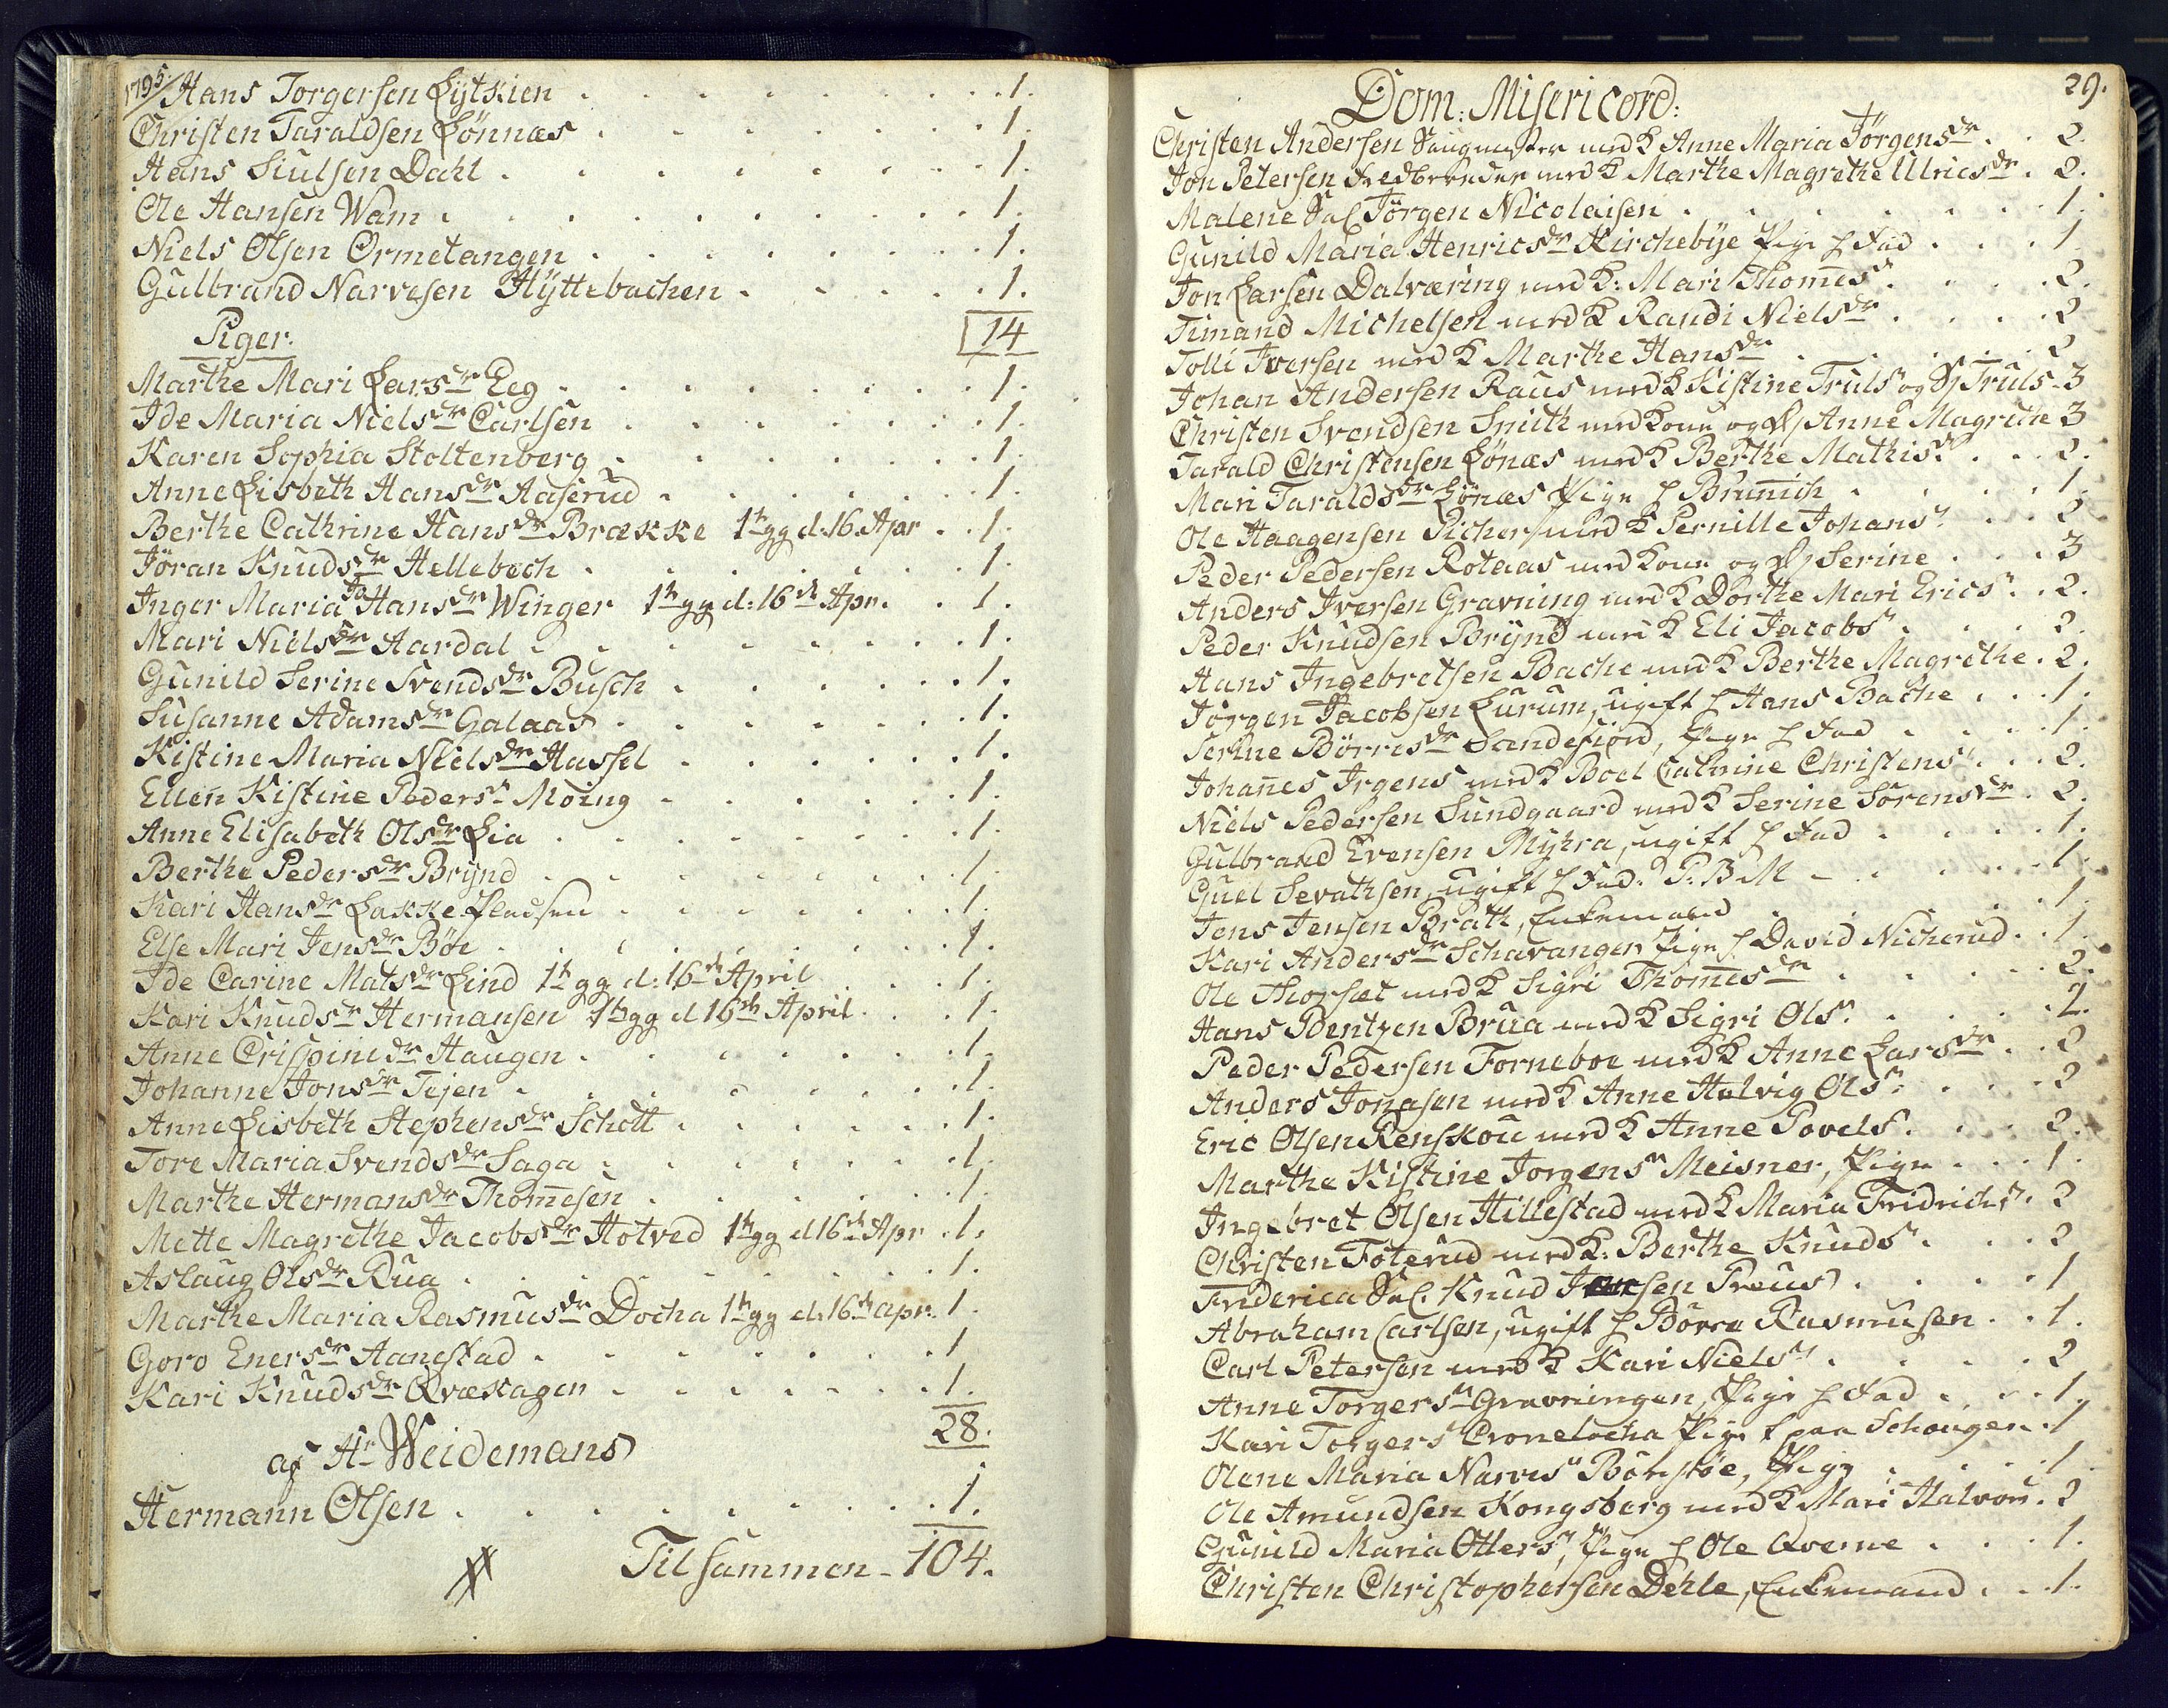 1795.
Hans Torgersen Lytskien . . . . . . . . . 1.
Christen Taraldsen Lönnæs . . . . . . . 1.
Hans Siulsen Dahl . . . . . . . . 1.
Ole Hansen Wam . . . . . . . . . 1.
Niels Olsen Ormetangen . . . . . . . 1.
Gulbrand Narvesen Hÿttebachen . . . . . 1.
14
Piger.
Marthe Mari Larsdr Eeg . . . . . . . . 1.
Ide Maria Nielsdr Carlsen . . . . . . . 1.
Karen Sophia Stoltenberg . . . . . . . 1.
Anne Lisbeth Hansdr Aaserud . . . . . . 1.
Berthe Cathrine Hansdr Brække 1te gg d: 16 Apr . . 1.
Jöran Knudsdr Hellebech . . . . . . . 1.
Inger Maria Hansdr Winger 1te gg d: 16de Apr. . . 1.
Mari Nielsdr Aardal . . . . . . . . 1.
Gunild Serine Svendsdr Busch . . . . . . 1.
Susanne Adamsdr Galaas . . . . . . . 1.
Kistine Maria Nielsdr Hassel . . . . . . 1.
Ellen Kistine Pedersr Möing . . . . . . 1.
Anne Elisabeth Olsdr Lia . . . . . . . 1.
Berthe Pedersdr Brÿnd . . . . . . . . 1.
Kari Hansdr Lakke Pladsen . . . . . . . 1.
Else Mari Jensdr Böe . . . . . . . . 1.
Ide Carine Matsdr Lind 1te gg d: 16de April . . . 1.
Kari Knudsdr Hermansen 1te gg d 16de April . . . 1.
Anne Crispinidr Haugen . . . . . . . 1.
Johanne Jonsdr Tejen . . . . . . . . 1.
Anne Lisbeth Stephensdr Schott . . . . . . 1.
Tore Maria Svendsdr Saga . . . . . . . 1.
Marthe Hermansdr Thomesen . . . . . . 1.
Mette Magrethe Jacobsdr Hotved 1te gg d 16de Apr . 1.
Aslaug Olsdr Rua . . . . . . . . . 1.
Marthe Maria Rasmusdr Docha 1te gg d: 16de apr. 1.
Goro Enersdr Aanestad . . . . . . . 1
Kari Knudsdr Qvækagen . . . . . . . 1.
28.
af Hr Weidemans
Hermann Olsen . . . . . . . . . 1.
Tilsammen - 104.
29.
Dom: Misericord:
Christen Andersen Saugmester med K Anne Maria Jörgensdr . . 2.
Jon Petersen Fredbereder med K Marthe Magrethe Ulricsdr . 2.
Malene Sal Jörgen Nicolaisen . . . . . . . 1.
Gunild Maria Henricsdr Kirchebÿe Pige h Fad . . . 1
Jon Larsen Dalværing med K: Mari Thomesr . . . . 2.
Timand Michelsen med K Randi Nielsdr . . . . 2
Tolli Iversen med K Marthe Hansdr . . . . . 2
Johan Andersen Raus med K Kistine Truls og S Truls . 3
Christen Svendsen Smith med Kone og D Anne Magrethe 3
Tarald Christensen Lönæs med K Berthe Mathisr . . . 2.
Mari Taraldsdr Lönæs Pige h Brunnich . . . . 1.
Ole Haagensen Picher med K Pernille Johansr . . . 2
Peder Pedersen Rotaas med Kone og D Serine . . . 3
Anders Iversen Gravning med K Dorthe Mari Ericsr . . 2.
Peder Knudsen Brÿnd med K Eli Jacobsr . . . . 2.
Hans Ingebretsen Bache med K Berthe Magrethe . 2.
Jörgen Jacobsen Lurum, ugift h Hans Bache . . . 1.
Serine Börresdr Sandefiord, Pige h Fad . . . . 1.
Johanes Irgens med K Boel Catrine Christensr . . . 2.
Niels Pedersen Sundgaard med K Serine Sörensdr . 2.
Gulbrand Evensen Mÿhra, ugift h Fad . . . . 1.
Guel Sevathsen, ugift h Fad. P. B M - . . . . 1.
Jens Jensen Brath, Enkemand . . . . . 1.
Kari Andersdr Schavangen Pige h David Nicherud . . 1.
Ole Thorsæt med K Sigri Thomesdr . . . . . 2.
Hans Bentzen Brua med K Sigri Olsr . . . . . 2.
Peder Pedersen Forneboe med K Anne Larsdr . . 2
Anders Jonasen med K Anne Helvig Olsr . . . . 2
Eric Olsen Renskou med K Anne Povels . . . . 2.
Marthe Kistine Jorgensr Meisner, Pige . . . 1.
Ingebret Olsen Hillestad med K Maria Fridrichsr . 2
Christen Foterud med K: Berthe Knudsr . . . 2
Friderica Sal. Knud Jensen Preus . . . . . 1
Abraham Carlsen, ugift h Börre Rasmusen . . 1.
Carl Petersen med K Kari Nielsr . . . . . 2
Anne Torgersr Gravningen, Pige h Fad . . . 1.
Kari Torgers Cronelocha Pige h paa Schougen . 1
Olene Maria Narvesr Börstöe, Pige . . . . . 1.
Ole Amundsen Kongsberg med K Mari Halvors . 2
Gunild Maria Ottersr, Pige h Ole Qverne . . . 1.
Christen Christophersen Dehle, Enkemand . . . 1.